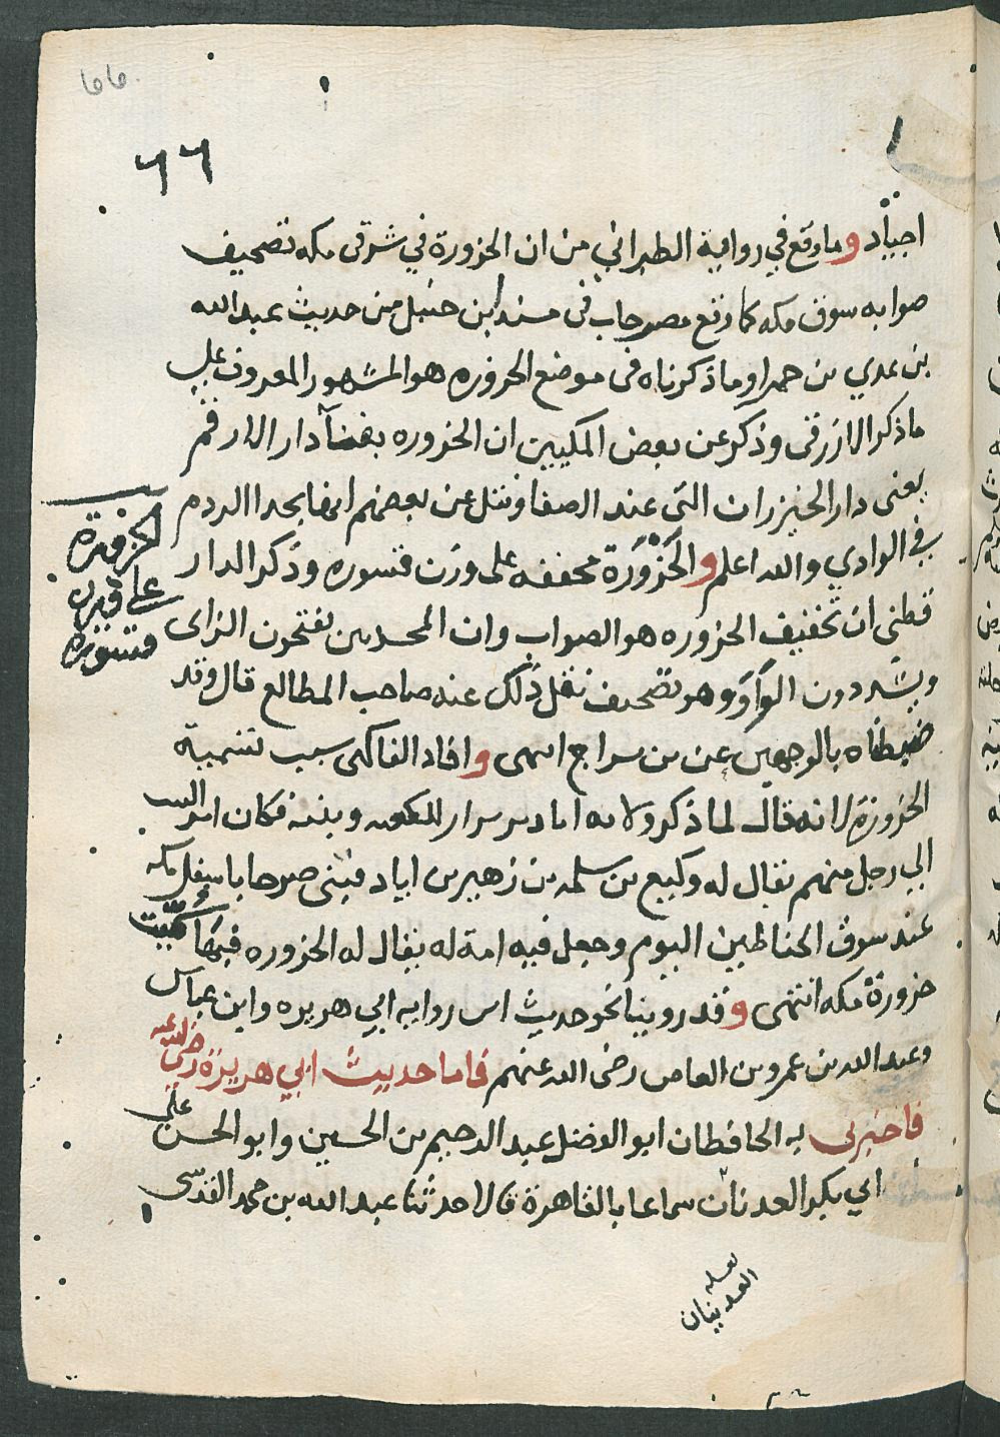 ٦٦
اجياد وما وقع في رواية الطبراني من ان الحزورة في شرقى مكه تصحيف
صوابه سوق مكه كما وقع مصرحابه فى مسند ابن حنبل من حديث عبد الله
بن عدي بن حمرا وما ذكرناه فى موضع الحزوره هو المشهور المعروف على
ما ذكر الازرقى وذكر عن بعض المكيين ان الحزوره بفضآ دار الارقم
يعنى دار الخيزران التى عند الصفا ونقل عن بعضهم انها بحذا الردم
في الوادي والله اعلم والحَزْوَرَة مخففه على وزن قسوره وذكر الدار
قطنى ان تخفيف الحزوره هو الصواب وان المحدثين يفتحون الزاى
ويشددون الواو وهو تصحيف نقل ذلك عنه صاحب المطالع قال وقد
ضبطناه بالوجهين عن بن سراج انتهى وافاد الفاكهى سبب تسمية
الحزورة لانه قال لما ذكر ولاية اياد بن نزار للكعبه فكان امر البيت
الي رجل منهم يقال له وكيع بن سلمه بن زهير بن اياد فبنى صرحا باسفل مكه
عند سوق الحناطين اليوم وجعل فيه امة له يقال له الحزوره فبها سُمِّيت
حزورة مكه انتهى وقد روينا نحو حديث اس روايه ابي هريره وابن عباس
وعبد الله بن عمرو بن العاص رضى الله عنهم فاما حديث ابي هريرة رضى الله عنه
فاخبرنى به الحافظان ابو الفضل عبد الرحيم بن الحسين وابو الحسن علي
ابي بكر العدنان سماعا بالقاهرة قالا حدثنا عبد الله بن محمد القدسى
الحزورة
على وزن
قسورة
لعله
العدنيان